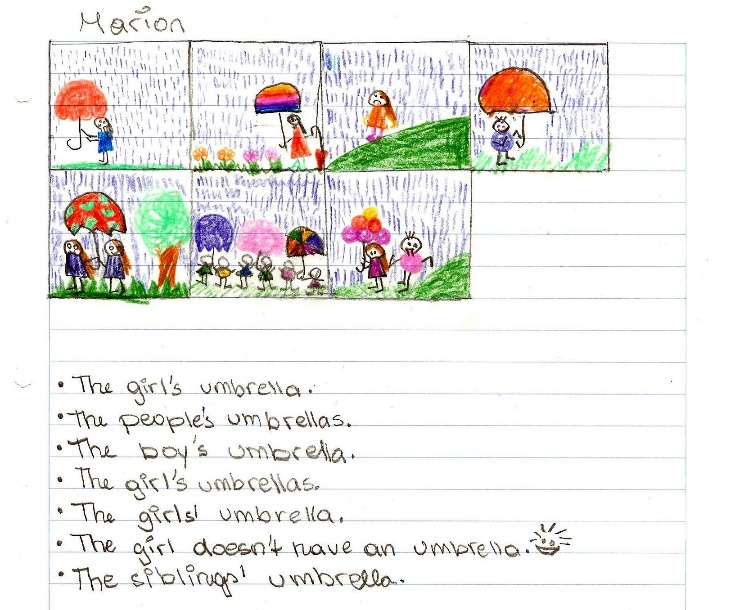 Marion
• The girl's umbrella.
• The people's umbrellas.
• The boy's umbrella.
• The girl's umbrellas.
• The girls' umbrella.
• The girl doesn't have an umbrella.
• The siblings' umbrella.